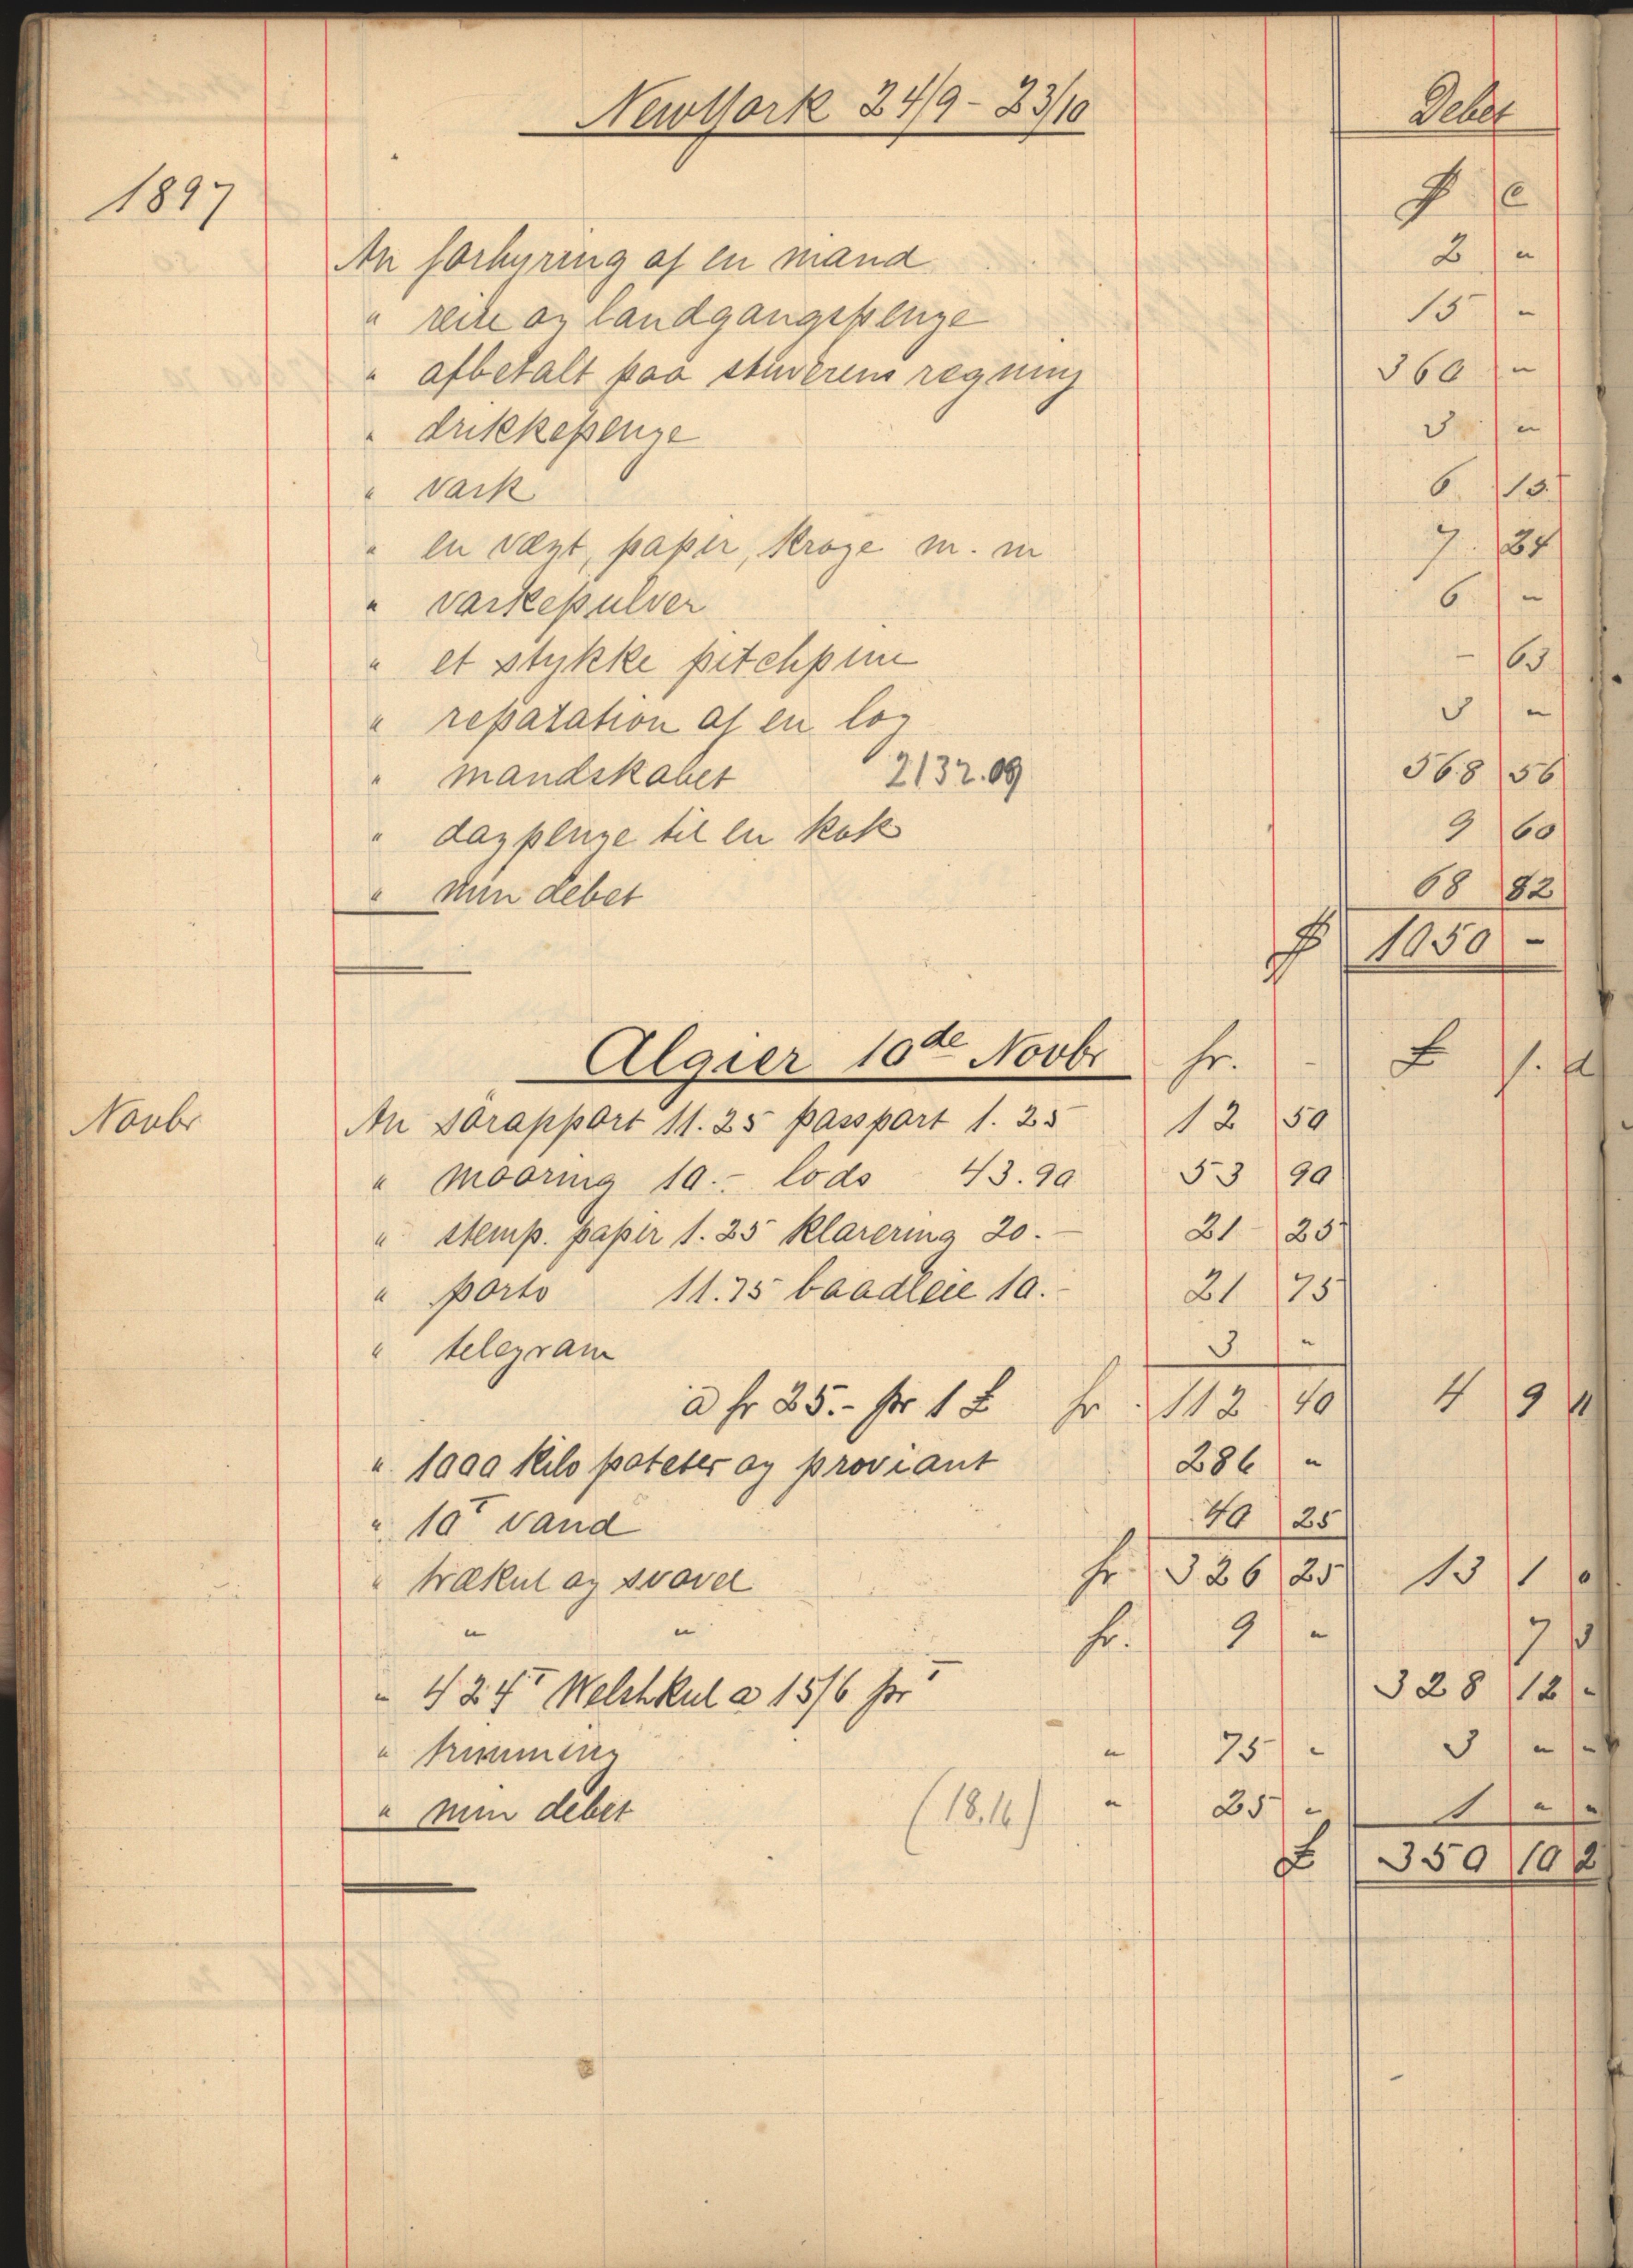 NewYork 24/9 - 23/10 Debet
1897 $ c
An forhyring af en mand 2 "
" reise og landgangspenge 15 -
" afbetalt paa stuverens regning 360 "
" drikkepenge 3 "
" vask 6. 15.
" en vægt, papir, kroge m. m 7. 24
" vaskepulver 6 "
" et stykke pitchpine - 63
" reparation af en log 3 "
" mandskabet 2132.09 568 56
" dagpenge til en kok 9 60
" min debet 68 82
$ 1050 -
Algier 10de Novbr fr. - £ s. d
Novbr An sørapport 11.25 passport 1.25 12 50
" mooring 10.- lods 43.90 53 90
" stemp. papir 1.25 klarering 20.- 21 25
" porto 11.75 baadleie 10.- 21 75
" telegram 3 "
à fr 25.- pr 1 £ fr. 112 40 4 9 11
" 1000 kilo poteter og proviant 286 "
" 10T vand 40 25
" trækul og svovel fr. 326 25 13 1 0
" " fr. 9 " 7 3
" 424T Welshkul a 15/6 pr T 328 12 -
" trimming " 75 - 3 " -
" min debet (18.16) " 25 " 1 " "
£ 350 10 2